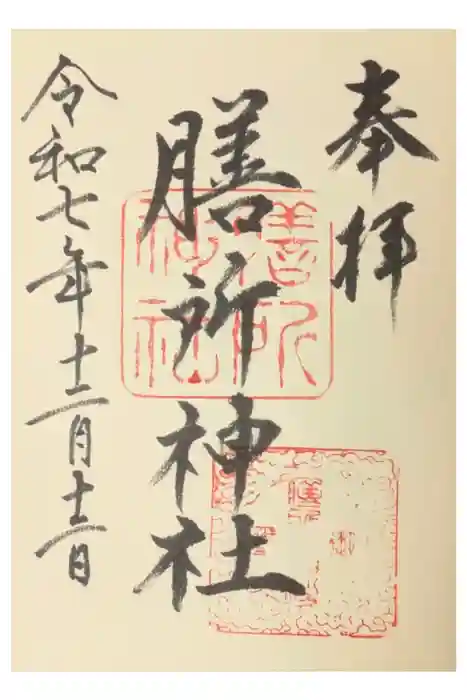 奉拝
膳所神社
令和七年十二月十三日
膳所
神社